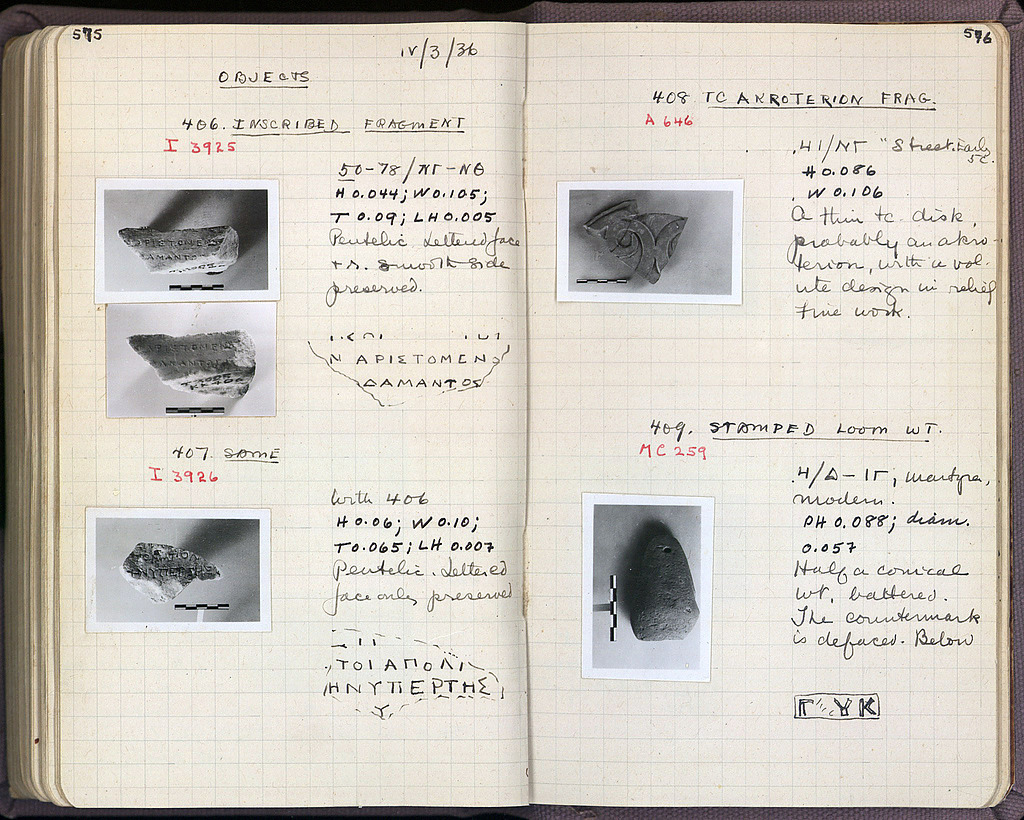 575
IV/3/36
OBJECTS
406. INSCRIBED FRAGMENT
I 3925
50-78/ΝΓ-ΝΘ
H 0.044; W 0.105;
T 0.09; LH 0.005
Pentelic. Lettered face
+ r. smooth side
preserved.
Ν ΑΡΙΣΤΟΜΕΝ
ΔΑΜΑΝΤΟΣ
407. SAME
I 3926
With 406
H 0.06; W 0.10;
T 0.065; LH 0.007
Pentelic. Lettered
face only preserved
ΤΟΙΑΠΟΛΙ
ΗΝΥΠΕΡΤΗΣ
Υ
576
408 TC AKROTERION FRAG.
A 646
41/ΝΓ "Street. Early
5c.
H 0.086
W 0.106
A thin tc. disk,
probably an akro-
terion, with a vol-
ute design in relief
Fine work.
409. STAMPED LOOM WT.
MC 259
4/Δ-ΙΓ; martyra,
modern.
PH 0.088; diam.
0.057
Half a conical
wt, battered.
The countermark
is defaced. Below
Γ ΥΚ